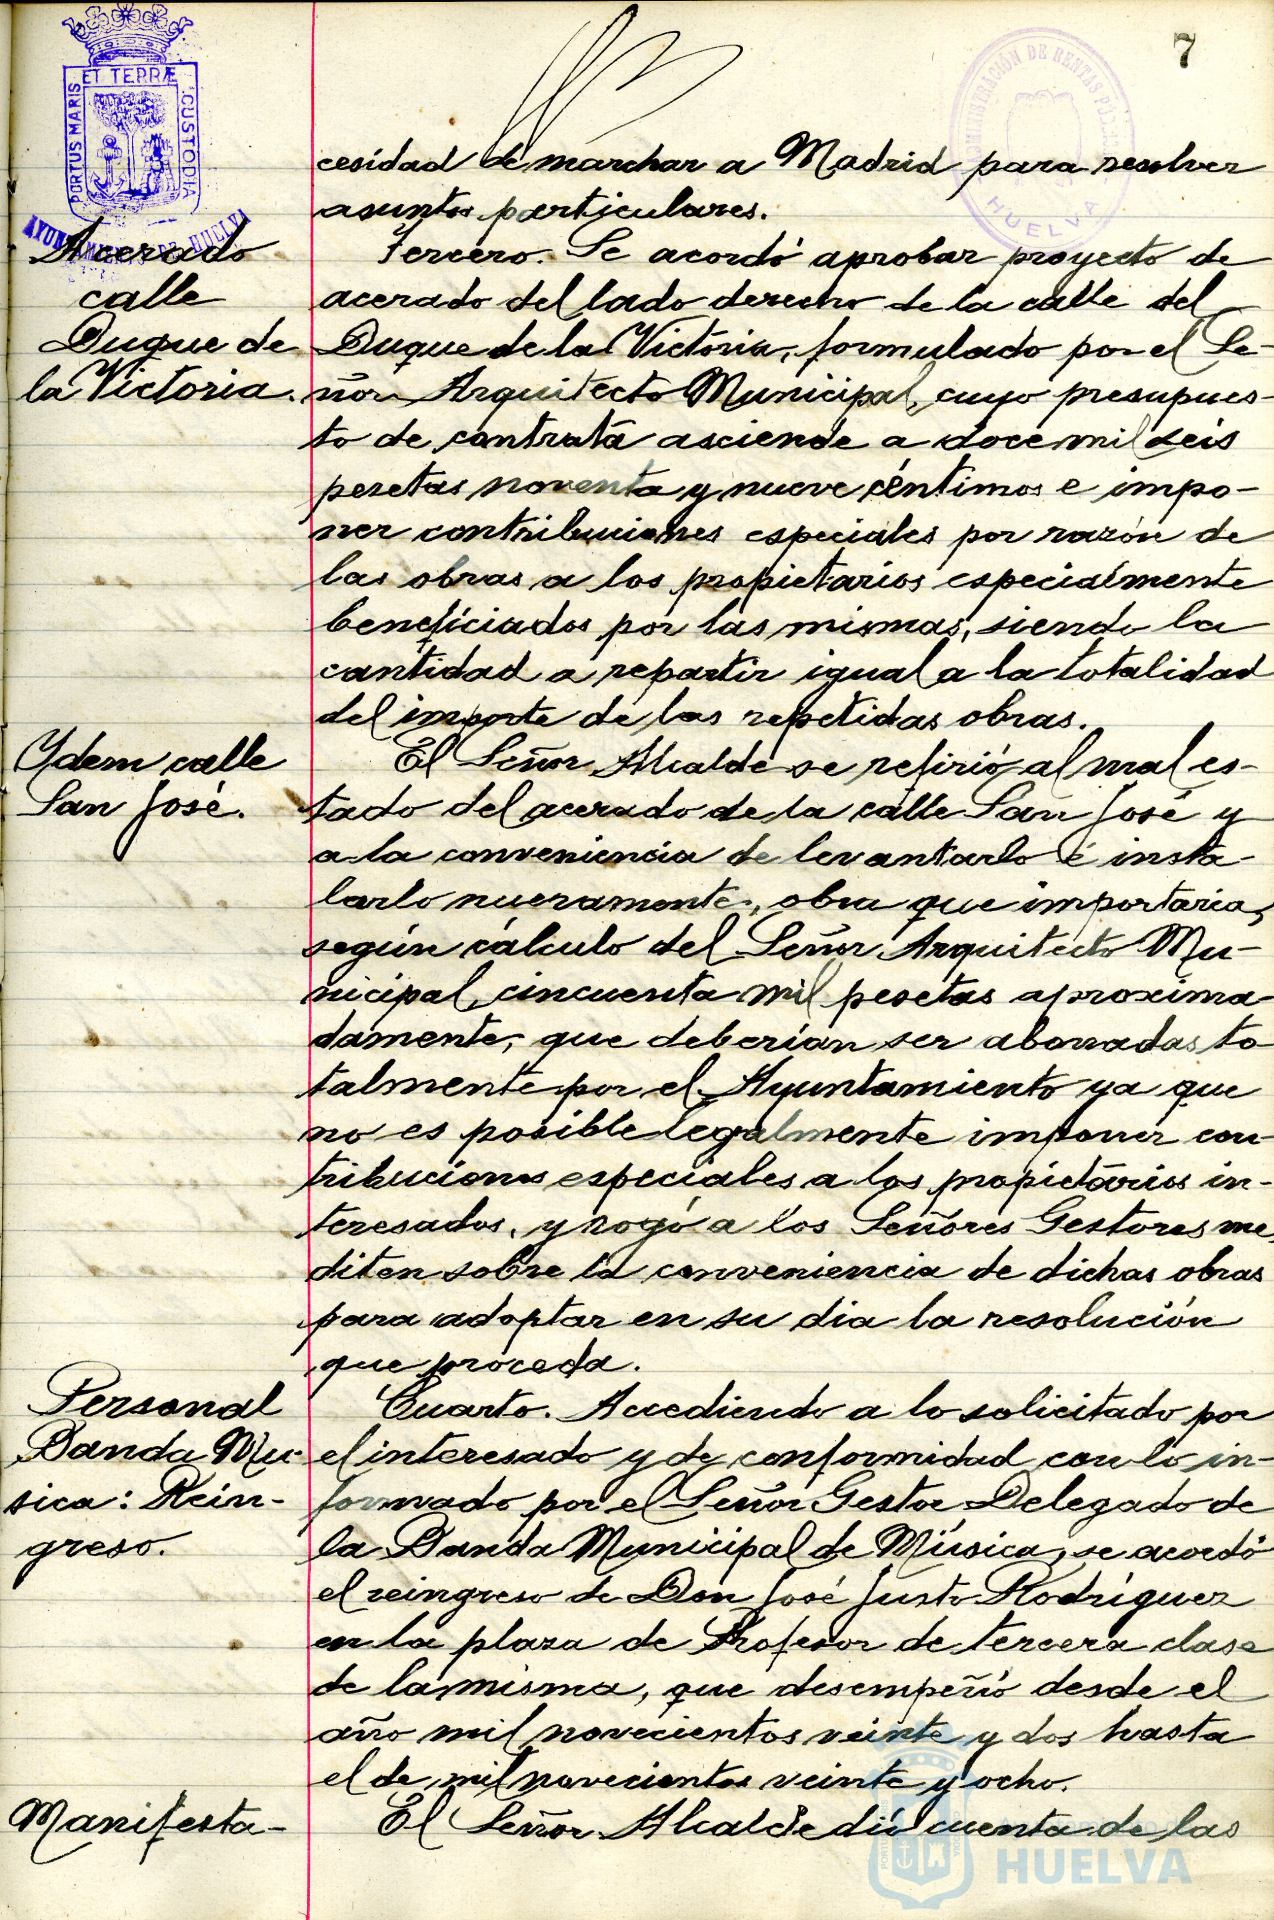 7
PORTUS MARIS ET TERRÆ CUSTODIA
AYUNTAMIENTO DE HUELVA
ADMINISTRACIÓN DE RENTAS PÚBLICAS
HUELVA
cesidad de marchar a Madrid para resolver
asuntos particulares.
Acerado
calle
Duque de
la Victoria.
Tercero. Se acordó aprobar proyecto de
acerado del lado derecho de la calle del
Duque de la Victoria, formulado por el Se-
ñor Arquitecto Municipal, cuyo presupues-
to de contrata asciende a doce mil seis
pesetas noventa y nueve céntimos e impo-
ner contribuciones especiales por razón de
las obras a los propietarios especialmente
beneficiados por las mismas, siendo la
cantidad a repartir igual a la totalidad
del importe de las repetidas obras.
Ydem calle
San José.
El Señor Alcalde se refirió al mal es-
tado del acerado de la calle San José y
a la conveniencia de levantarlo é insta-
larlo nuevamente, obra que importaria,
según cálculo del Señor Arquitecto Mu-
nicipal, cincuenta mil pesetas aproxima-
damente, que deberían ser abonadas to-
talmente por el Ayuntamiento ya que
no es posible legalmente imponer con-
tribuciones especiales a los propietários in-
teresados, y rogó a los Señores Gestores me-
diten sobre la conveniencia de dichas obras
para adoptar en su dia la resolución
que proceda.
Personal
Banda Mu-
sica: Rein-
greso.
Cuarto. Accediendo a lo solicitado por
el interesado y de conformidad con lo in-
formado por el Señor Gestor Delegado de
la Banda Municipal de Música, se acordó
el reingreso de Don José Justo Rodríguez
en la plaza de Profesor de tercera clase
de la misma, que desempeñó desde el
año mil novecientos veinte y dos hasta
el de mil novecientos veinte y ocho.
Manifesta-
El Señor Alcalde dió cuenta de las
HUELVA